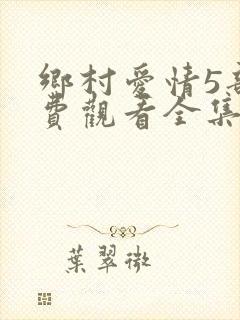 鄉村愛情5
費觀看全集
葉翠微